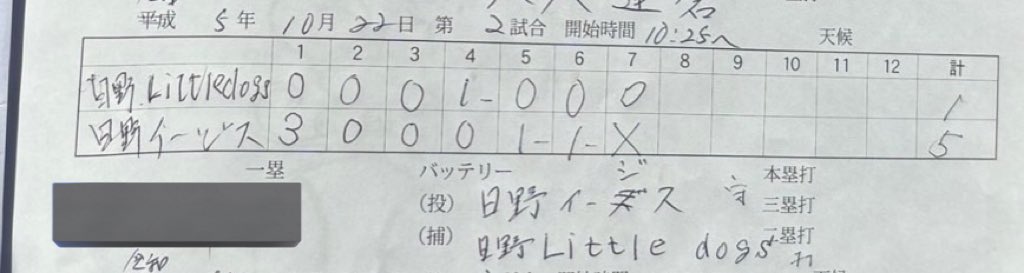 平成 5年 10月 22日 第 2試合 開始時間 10:25〜 天候
1 2 3 4 5 6 7 8 9 10 11 12 計
日野.Littledogs 0 0 0 1 0 0 0 1
日野イージス 3 0 0 0 1 1 X 5
一塁 バッテリー 本塁打
(投) 日野イージス 守 三塁打
(捕) 日野Little dogs 二塁打